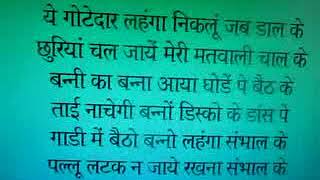 ये गोटेदार लहंगा निकलूं जब डाल के
छुरियां चल जायें मेरी मतवाली चाल के
बन्नी का बन्ना आया घोडें पे बैठ के
ताई नाचेगी बन्नों डिस्को के डांस पे
गाडी में बैठो बन्नो लहंगा संभाल के
पल्लू लटक न जाये रखना संभाल के